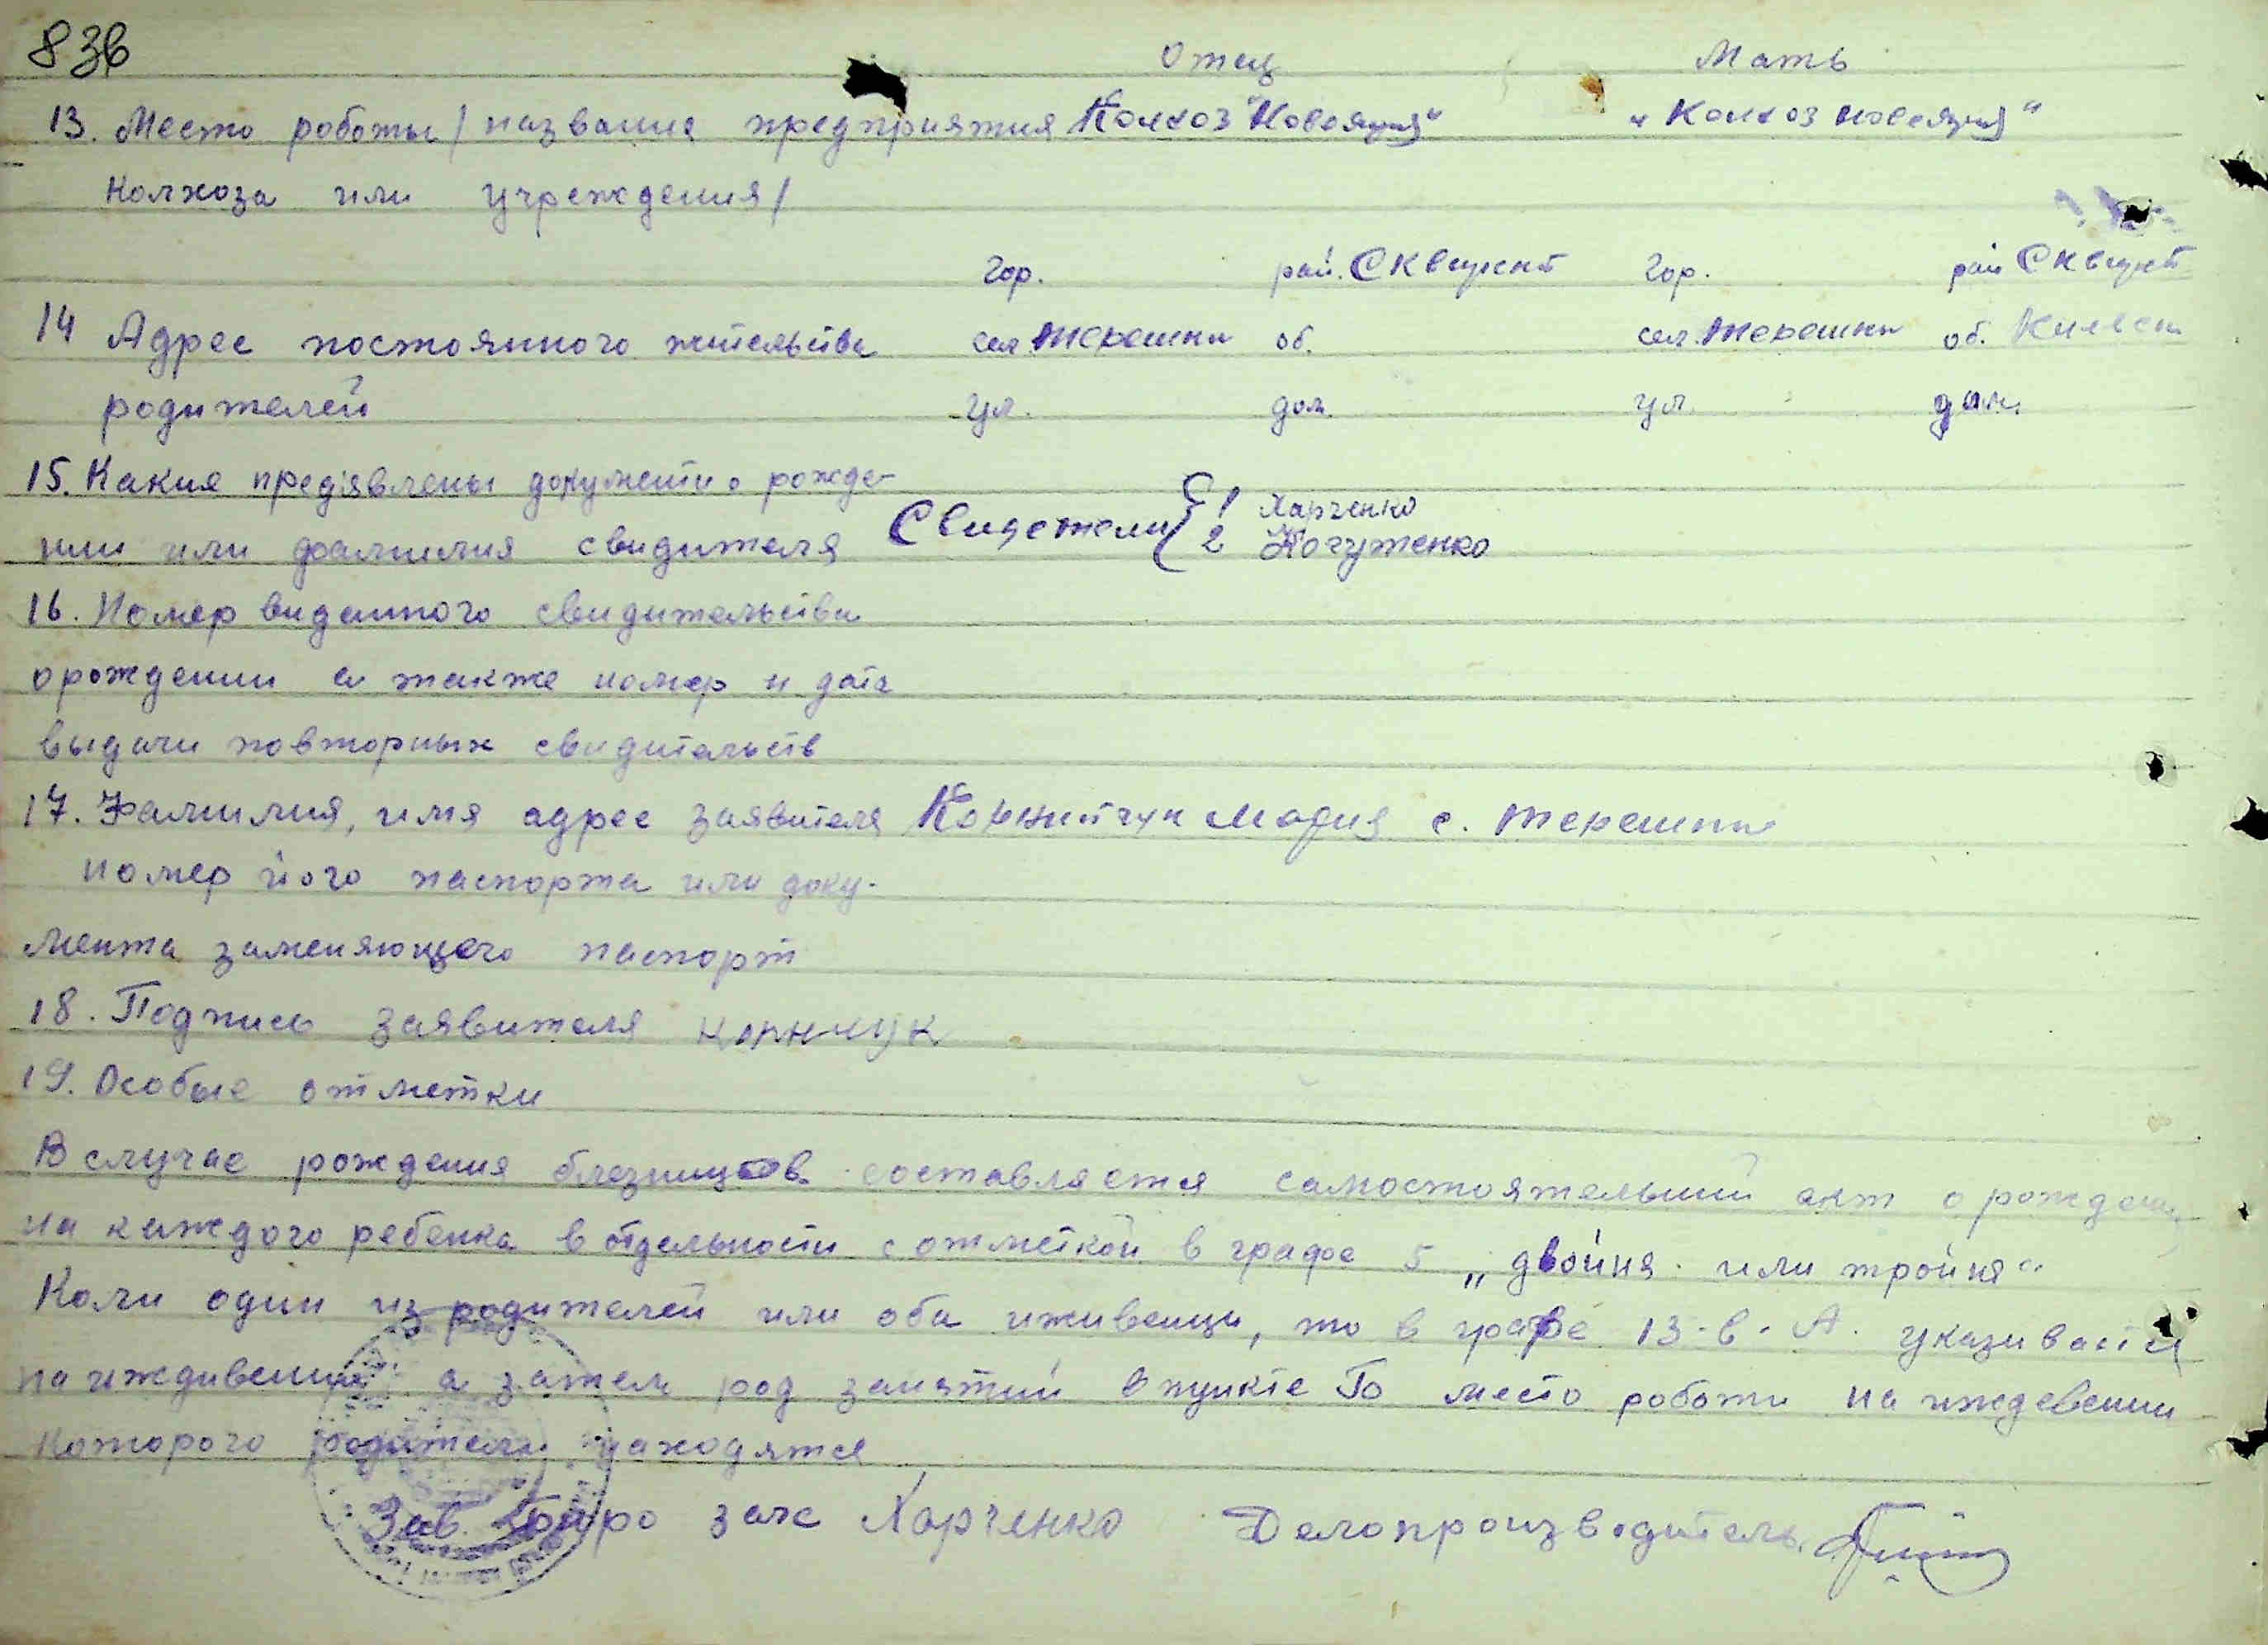 83в
Отец Мать
13. Место роботы / название предприятия Колхоз "Новая" "Колхоз
колхоза или учреждения /
гор. рай. Сквирский гор. рай Сквирск
14 Адрес постоянного жительства сел. Терешки об. сел. Терешки об. Киевск
родителей ул. дом. ул. дом.
15. Какие предъявлены документи о рожде-
нии или фамилия свидителя Свидетели { 1 Харченко
2 Когутенко
16. Номер виданного свидительства
о рождении а также номер и дата
выдачи повторных свидительств
17. Фамилия, имя адрес заявителя Корнийчук Мария с. Терешки
номер його паспорта или доку-
мента заменяющего паспорт
18. Подпись заявителя Корнчук
19. Особые отметки
В случае рождения близнецов составляется самостоятельний акт о рождении
на каждого ребенка в отдельности с отметкой в графе 5 „двойня или тройня"
Коли один из родителей или оба иживенци, то в графе 13-в. А. указивается
на иждивении а затем род занятий в пункте место роботи на иждевении
которого родители находятся
Зав. Бюро загс Харченко Делопроизводитель